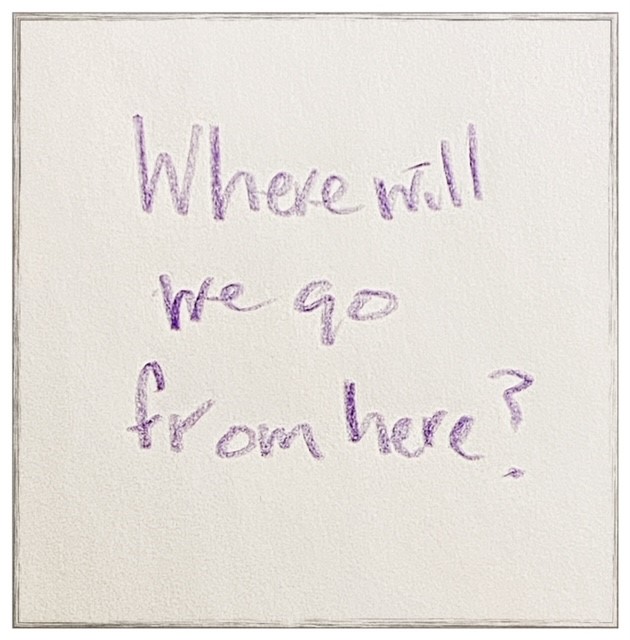 Where will
we go
from here?